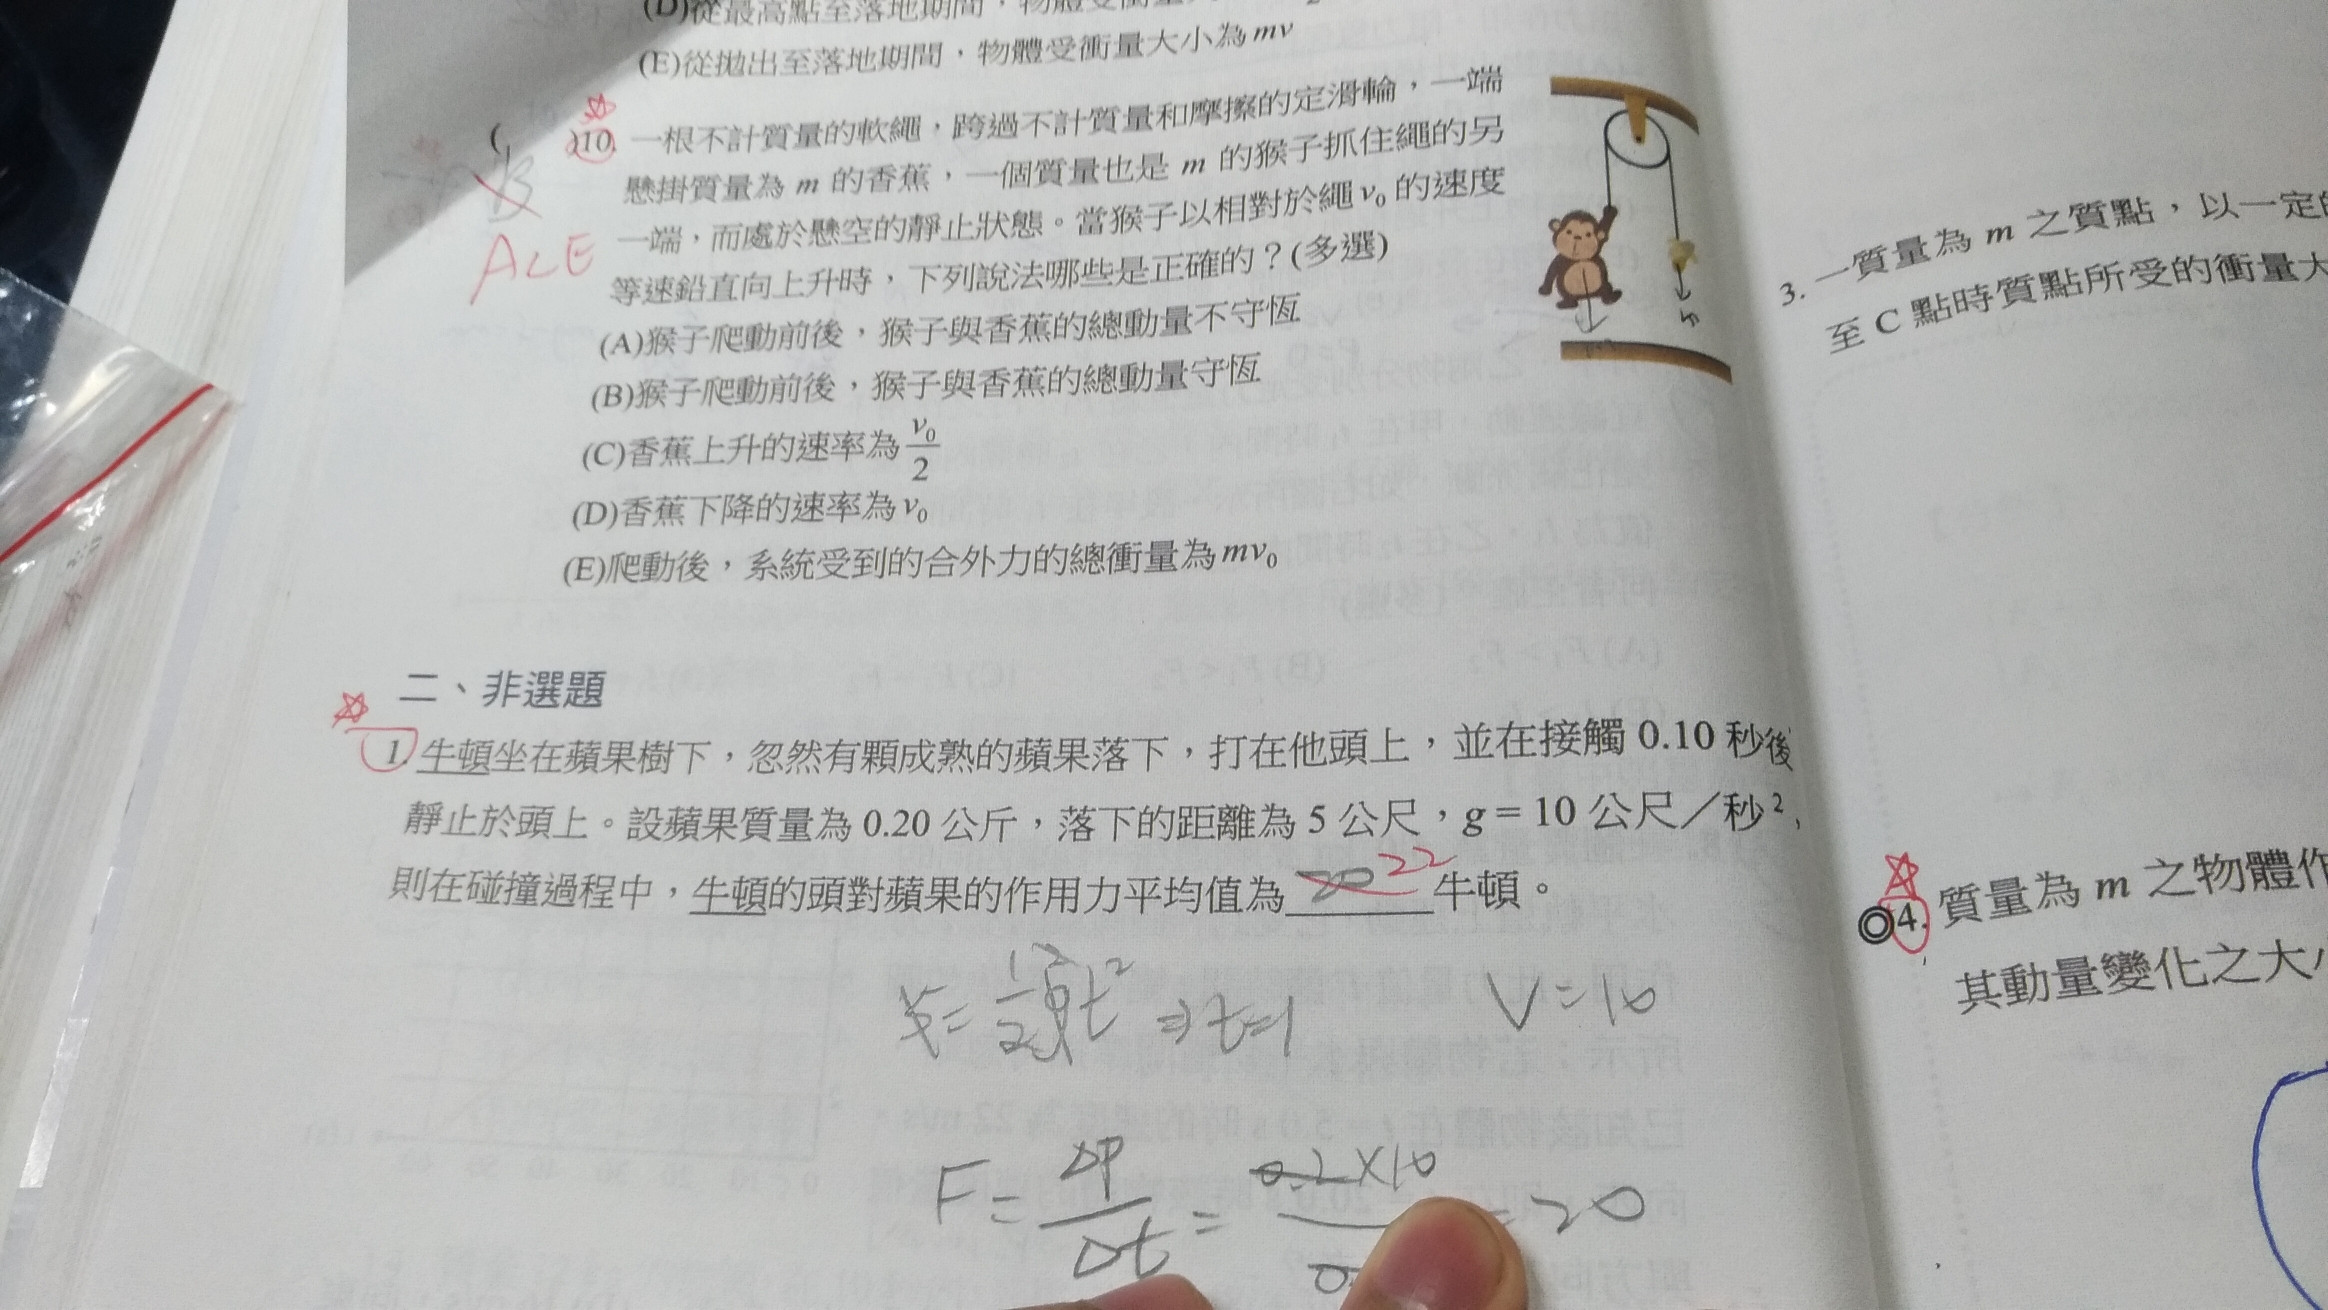 (D)從最高點至落地期間，物體受衝量
(E)從拋出至落地期間，物體受衝量大小為 mv
( )10. 一根不計質量的軟繩，跨過不計質量和摩擦的定滑輪，一端
懸掛質量為 m 的香蕉，一個質量也是 m 的猴子抓住繩的另
B
一端，而處於懸空的靜止狀態。當猴子以相對於繩 v₀ 的速度
ACE
等速鉛直向上升時，下列說法哪些是正確的？(多選)
(A)猴子爬動前後，猴子與香蕉的總動量不守恆
(B)猴子爬動前後，猴子與香蕉的總動量守恆
(C)香蕉上升的速率為 v₀/2
(D)香蕉下降的速率為 v₀
(E)爬動後，系統受到的合外力的總衝量為 mv₀
二、非選題
1. 牛頓坐在蘋果樹下，忽然有顆成熟的蘋果落下，打在他頭上，並在接觸 0.10 秒後
靜止於頭上。設蘋果質量為 0.20 公斤，落下的距離為 5 公尺，g = 10 公尺／秒²，
則在碰撞過程中，牛頓的頭對蘋果的作用力平均值為 20 22 牛頓。
t² ⇒ t=1 V=10
F = ΔP/Δt = 0.2×10 = 20
3. 一質量為 m 之質點，以一定
至 C 點時質點所受的衝量大
◎4. 質量為 m 之物體作
其動量變化之大